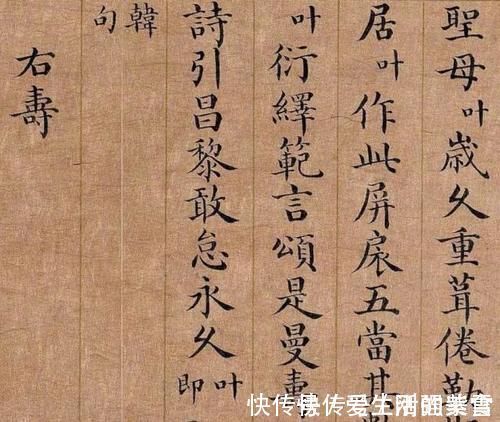 聖母叶歲久重葺倦勤
居叶作此屏扆五當其
叶衍繹範言頌是曼壽
詩引昌黎敢怠永久叶即
韓句
右壽
快传